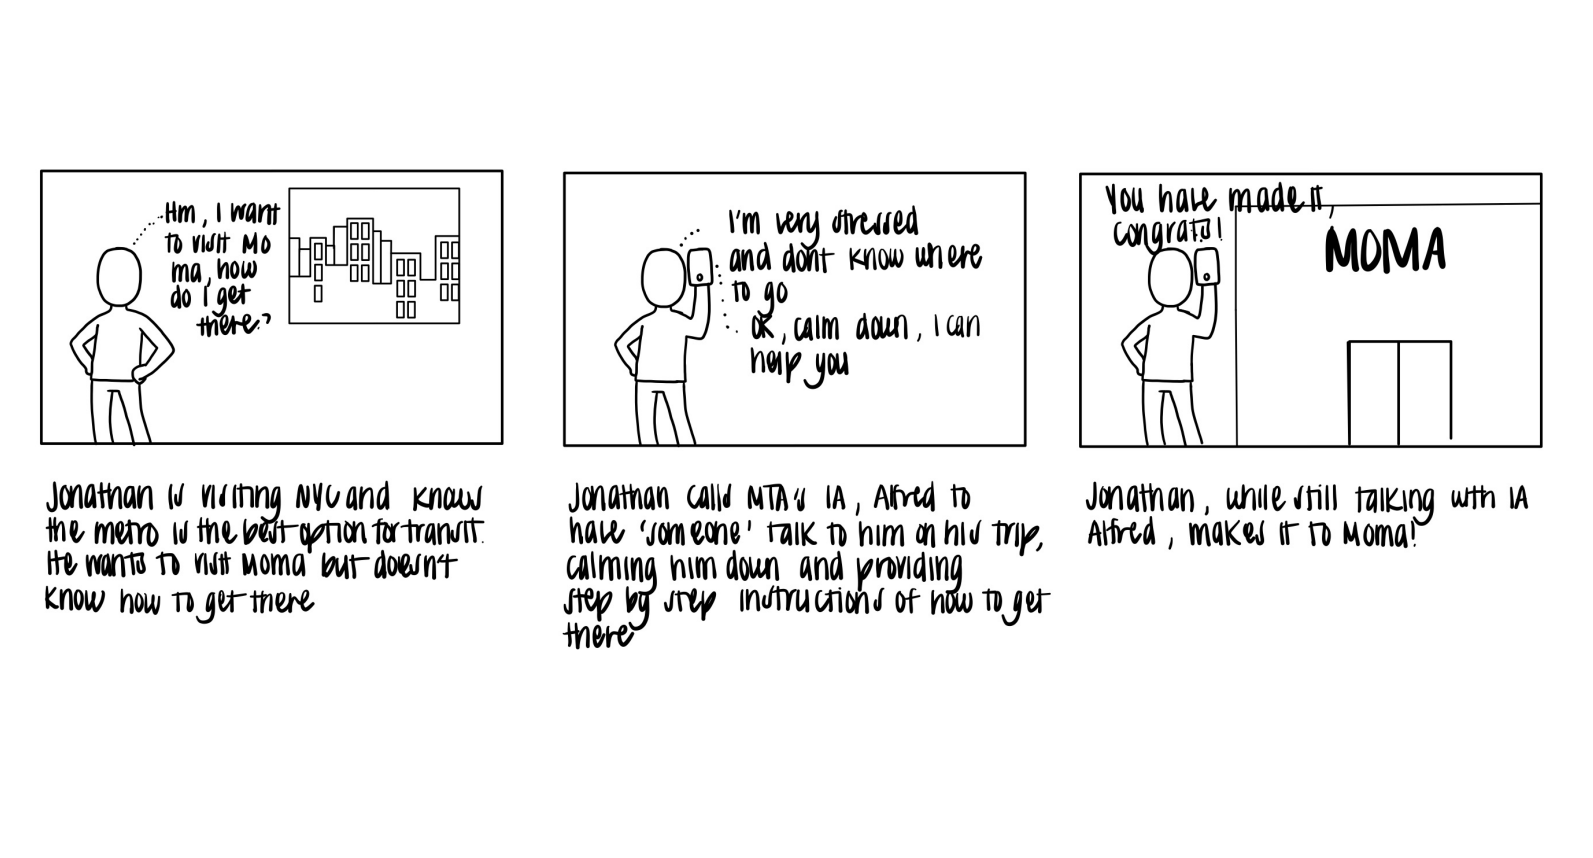 Hm, I want
to visit Mo
ma, how
do I get
there?
Jonathan is visiting NYC and knows
the metro is the best option for transit.
He wants to visit Moma but doesn't
know how to get there
I'm very stressed
and dont know where
to go
OK, calm down, I can
help you
Jonathan calls MTA's IA, Alfred to
have 'someone' talk to him on his trip,
calming him down and providing
step by step instructions of how to get
there
You have made it,
congrats!
MOMA
Jonathan, while still talking with IA
Alfred, makes it to Moma!